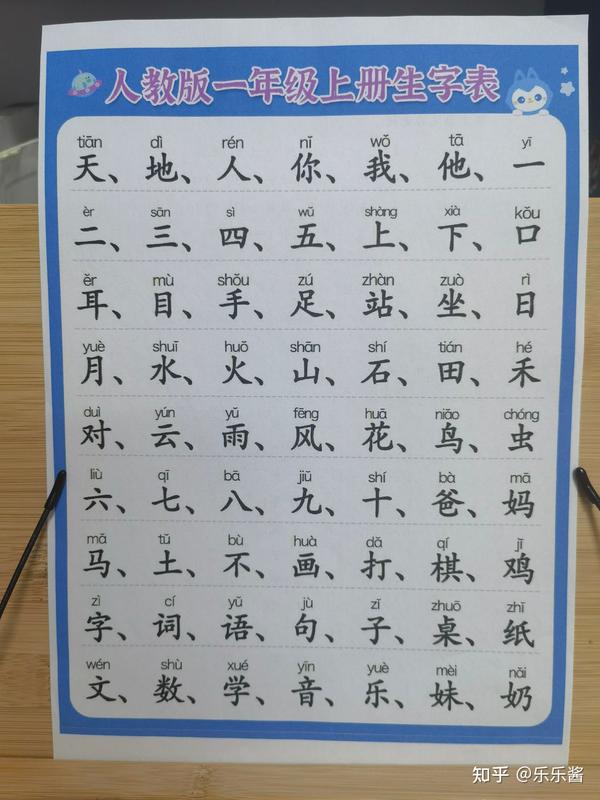 人教版一年级上册生字表
tiān dì rén nǐ wǒ tā yī
天、地、人、你、我、他、一
èr sān sì wǔ shàng xià kǒu
二、三、四、五、上、下、口
ěr mù shǒu zú zhàn zuò rì
耳、目、手、足、站、坐、日
yuè shuǐ huǒ shān shí tián hé
月、水、火、山、石、田、禾
duì yún yǔ fēng huā niǎo chóng
对、云、雨、风、花、鸟、虫
liù qī bā jiǔ shí bà mā
六、七、八、九、十、爸、妈
mǎ tǔ bù huà dǎ qí jī
马、土、不、画、打、棋、鸡
zì cí yǔ jù zǐ zhuō zhǐ
字、词、语、句、子、桌、纸
wén shù xué yīn yuè mèi nǎi
文、数、学、音、乐、妹、奶
知乎 @乐乐酱